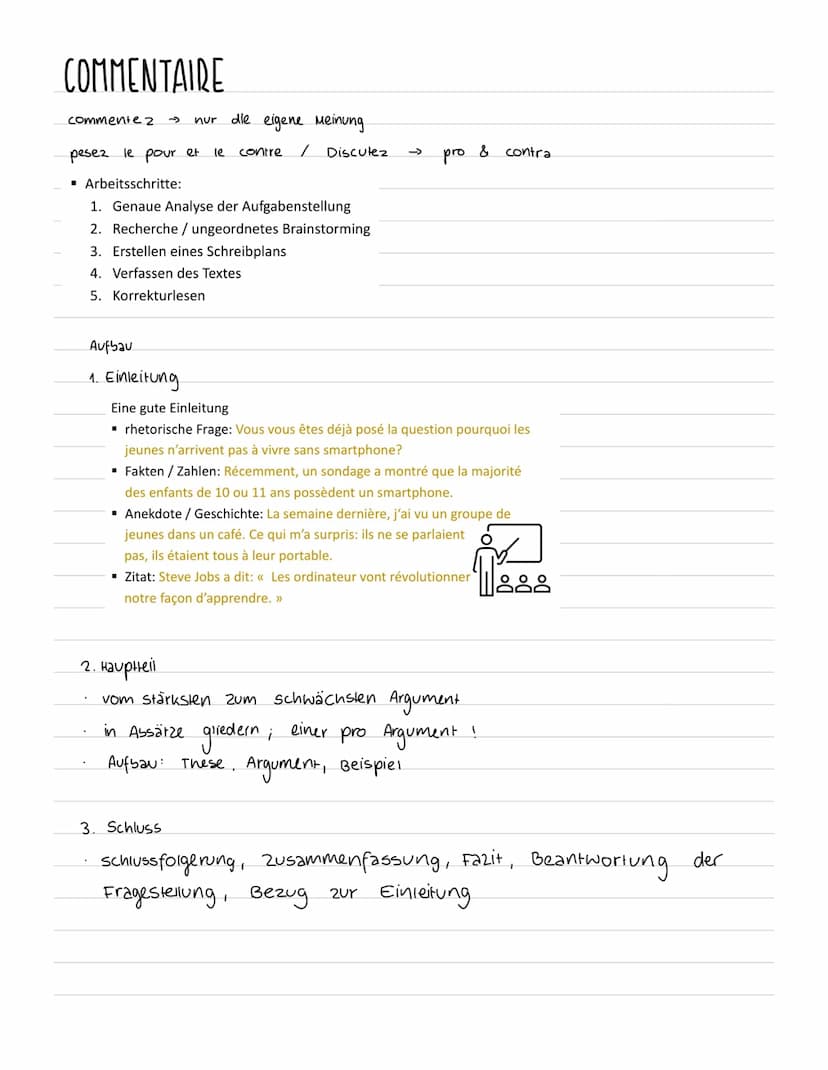 COMMENTAIRE
commentez → nur die eigene Meinung
pesez le pour et le contre / Discutez → pro & contra
▪ Arbeitsschritte:
1. Genaue Analyse der Aufgabenstellung
2. Recherche / ungeordnetes Brainstorming
3. Erstellen eines Schreibplans
4. Verfassen des Textes
5. Korrekturlesen
Aufbau
1. Einleitung
Eine gute Einleitung
▪ rhetorische Frage: Vous vous êtes déjà posé la question pourquoi les
jeunes n'arrivent pas à vivre sans smartphone?
▪ Fakten / Zahlen: Récemment, un sondage a montré que la majorité
des enfants de 10 ou 11 ans possèdent un smartphone.
▪ Anekdote / Geschichte: La semaine dernière, j'ai vu un groupe de
jeunes dans un café. Ce qui m'a surpris: ils ne se parlaient
pas, ils étaient tous à leur portable.
▪ Zitat: Steve Jobs a dit: « Les ordinateur vont révolutionner
notre façon d'apprendre. »
2. Hauptteil
· vom stärksten zum schwächsten Argument
· in Absätze gliedern; einer pro Argument!
· Aufbau: These, Argument, Beispiel
3. Schluss
· schlussfolgerung, zusammenfassung, Fazit, Beantwortung der
Fragestellung, Bezug zur Einleitung